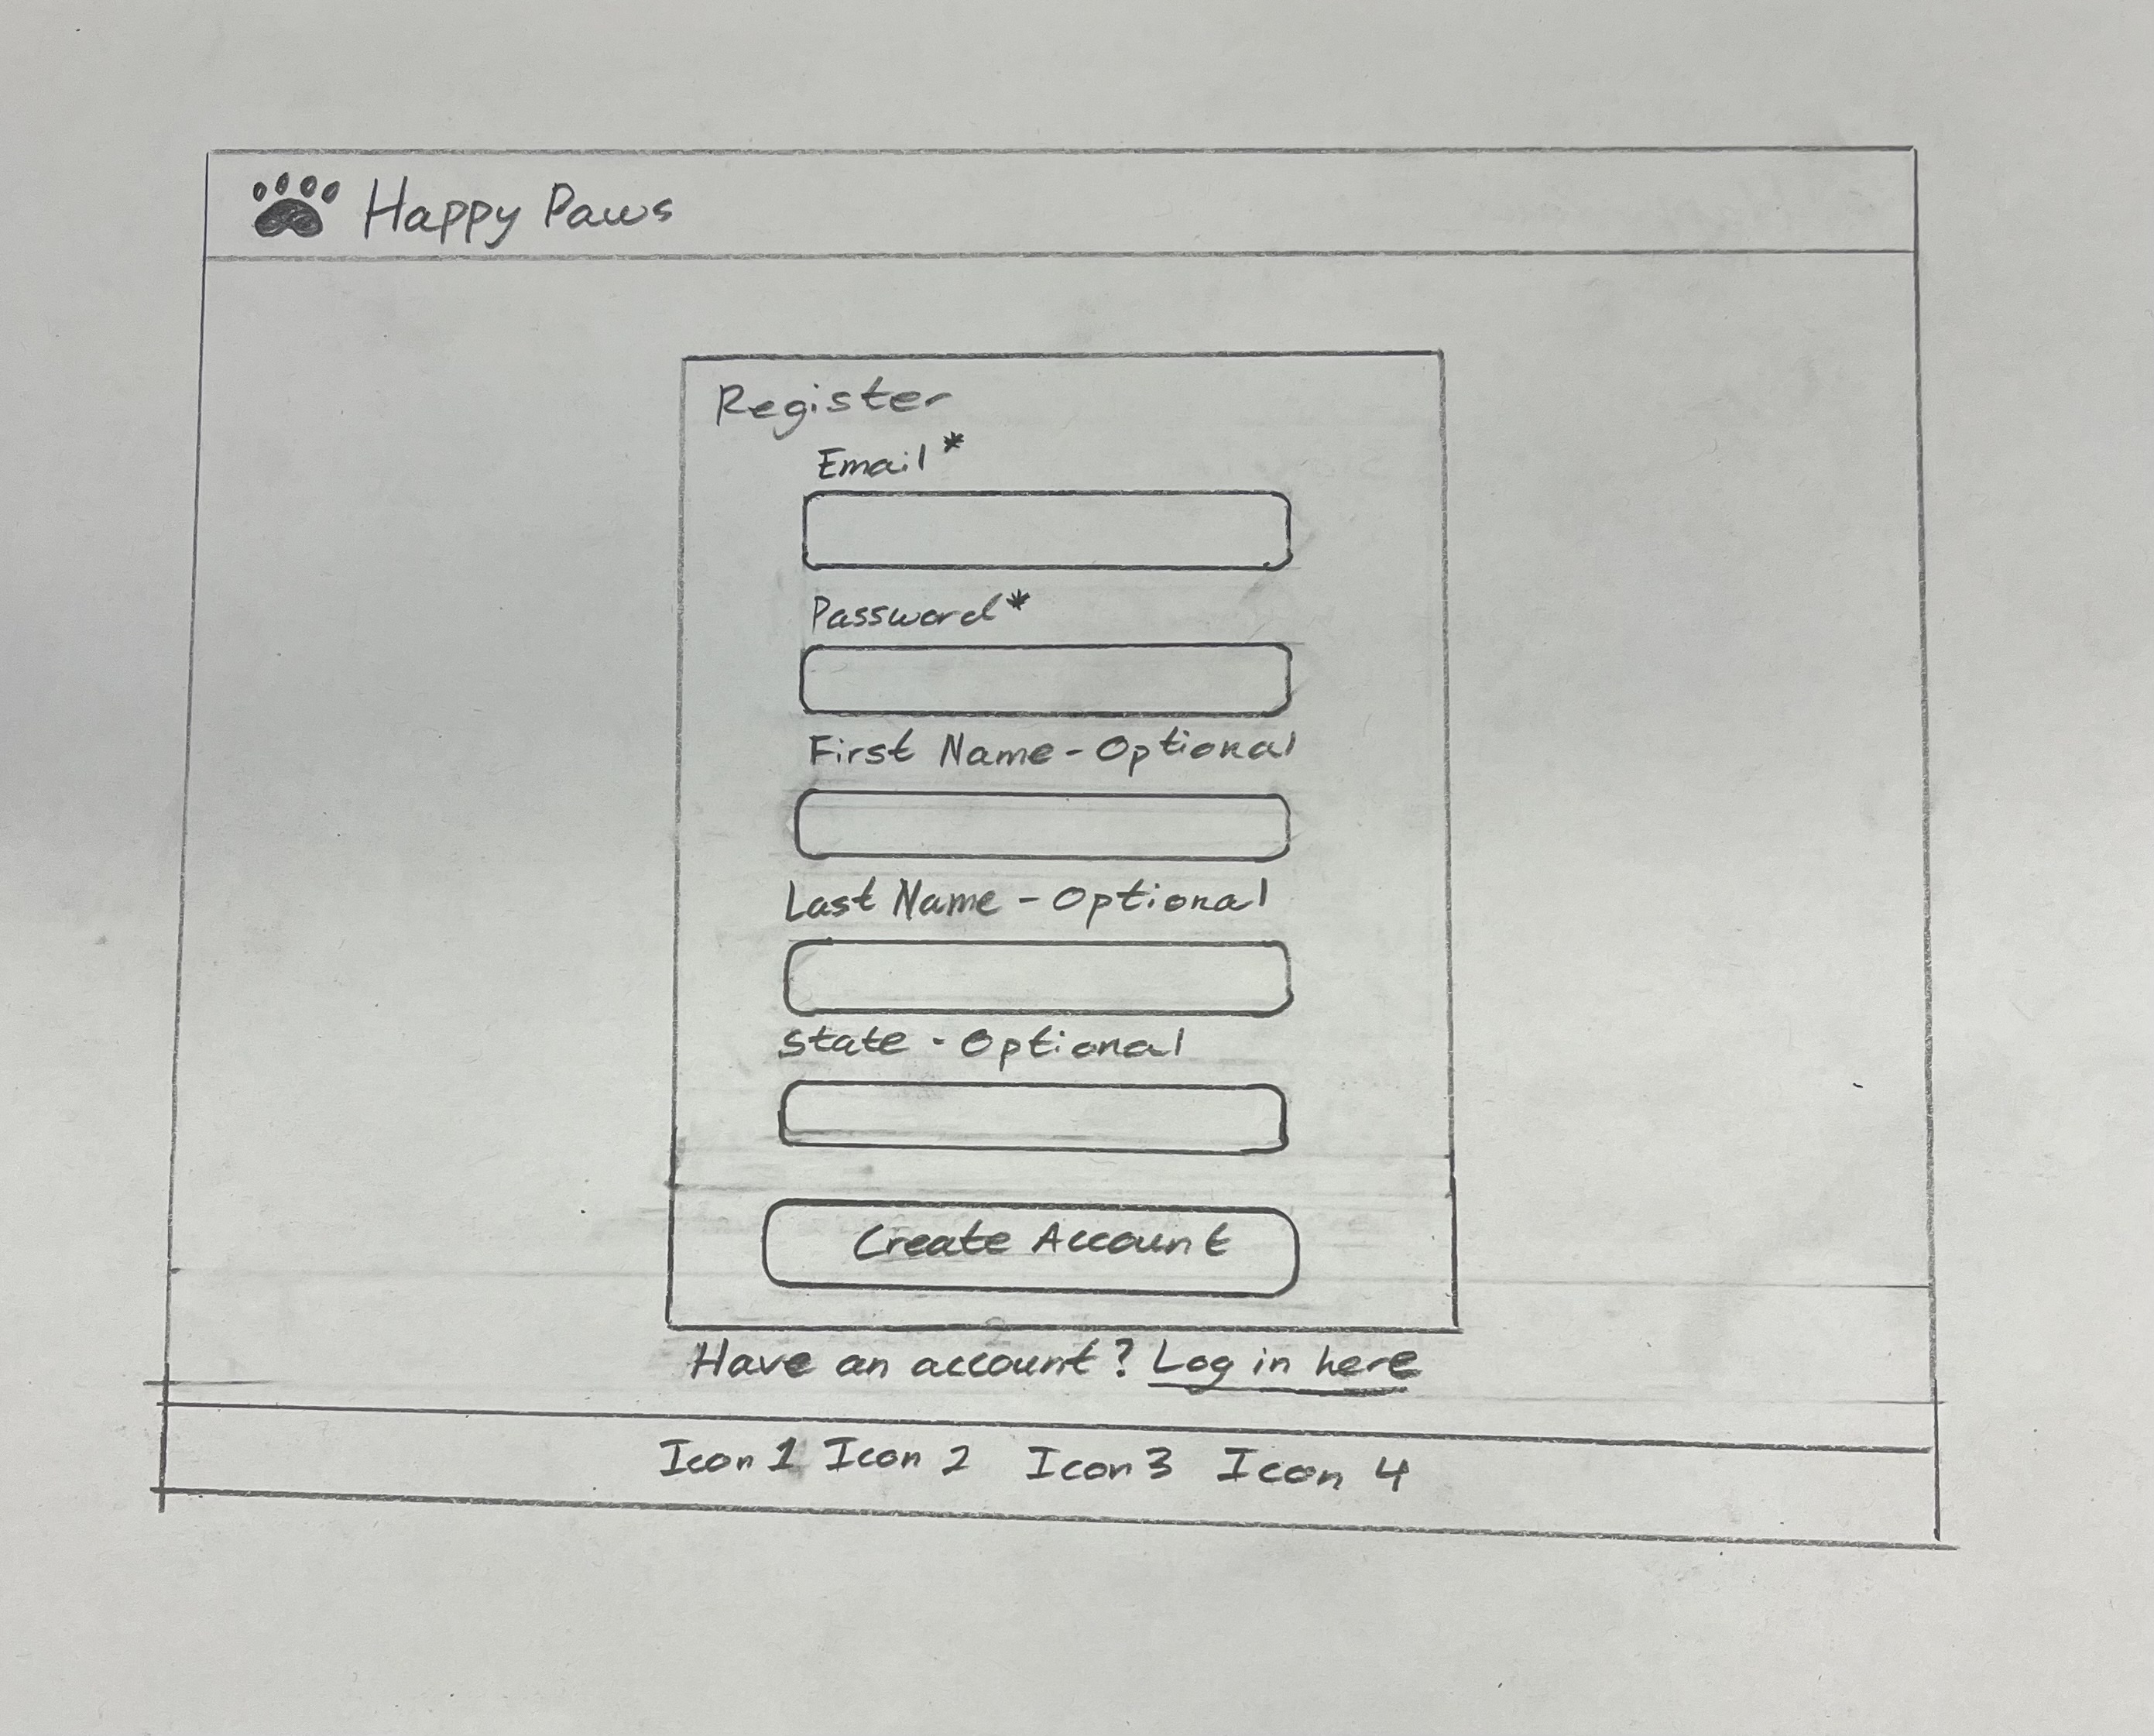 Happy Paws
Register
Email*
Password*
First Name - Optional
Last Name - Optional
State - Optional
Create Account
Have an account? Log in here
Icon 1 Icon 2 Icon 3 Icon 4